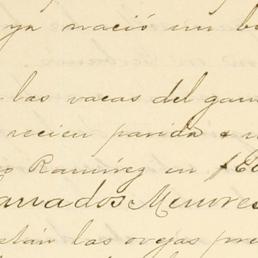 ya nació un b
las vacas del gan
recien parida
Ramírez en
anados Menores
están las ovejas pre